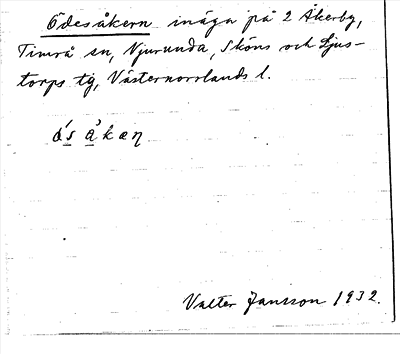 Ödesåkern inäga på 2 Åkerby,
Timrå sn, Njurunda, Sköns och Ljus-
torps tg, Västernorrlands l.
Valter Jansson 1932.